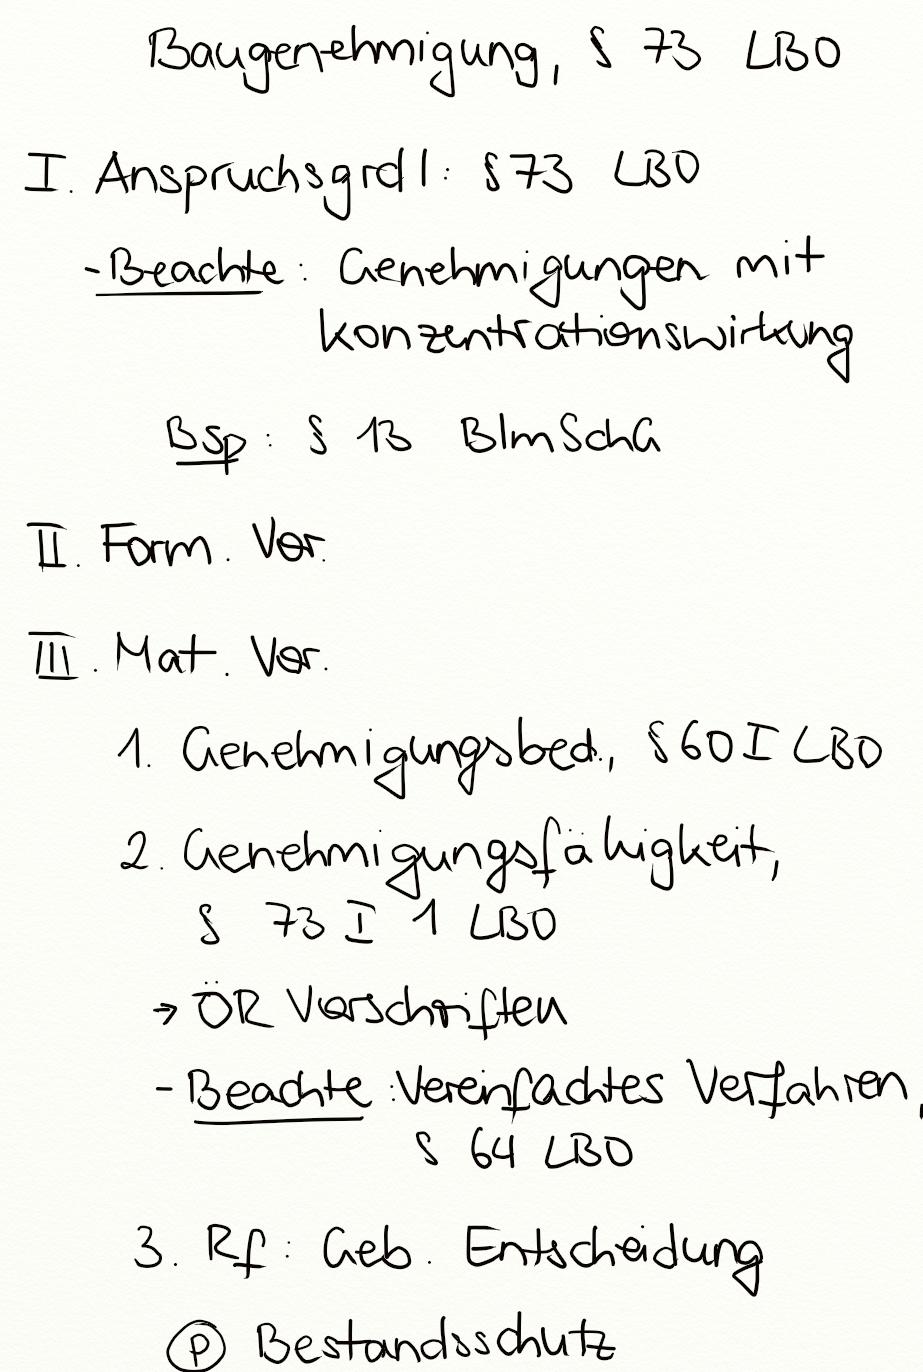 Baugenehmigung, § 73 LBO
I. Anspruchsgrdl: §73 LBO
-Beachte: Genehmigungen mit
Konzentrationswirkung
Bsp: § 13 BImSchG
II. Form. Vor.
III. Mat. Vor.
1. Genehmigungsbed., §60 I LBO
2. Genehmigungsfähigkeit,
§ 73 I 1 LBO
→ ÖR Vorschriften
- Beachte: Vereinfachtes Verfahren,
§ 64 LBO
3. Rf: Geb. Entscheidung
(P) Bestandsschutz